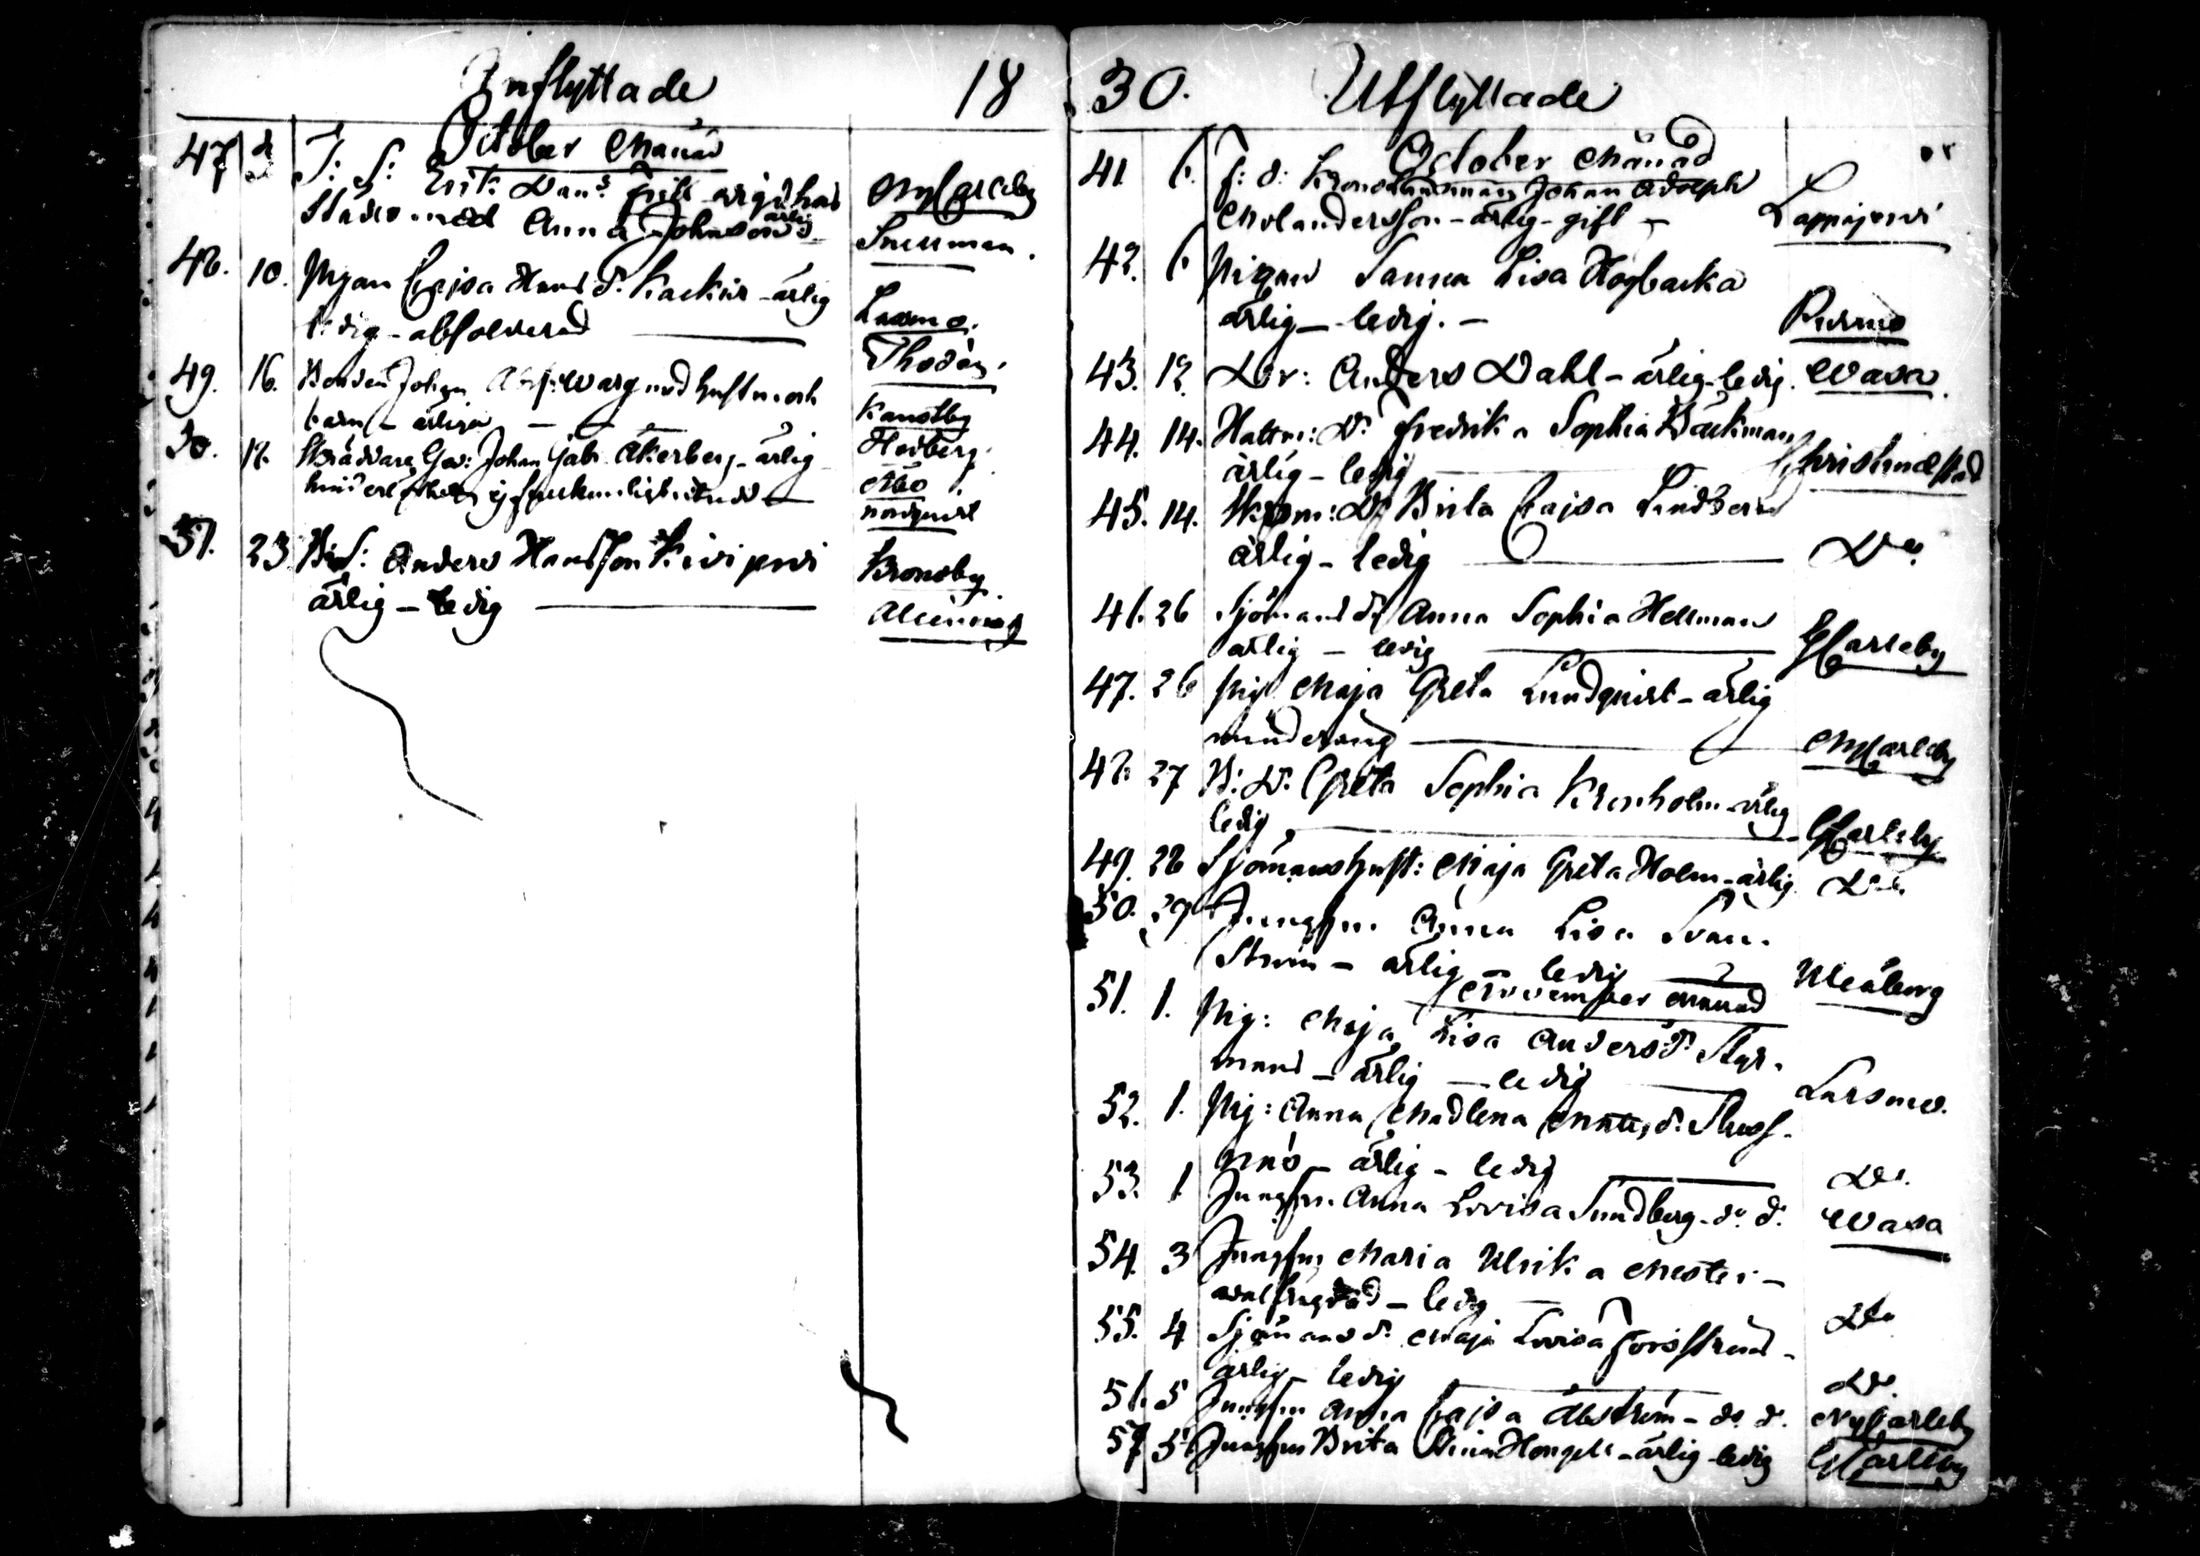 Inflyttade 18
October Månad
47 J: S: Erik Dan:s
Städs med Anna Johnsons
NyCarleby
Snellman.
48. 10. Pigan Cajsa Hans d:r Kackur - ärlig
ledig - absolverad
Larsmo.
Thodén.
49. 16. Bonden Johan Abr: Warg med hustru och
barn - ärliga
Kanstby
Hedberg.
50. 18. Skräddare Ges: Johan Gab: Åkerberg - ärlig
Åbo
nordqvist
51. 23. B:S: Anders Hansson Kivijervi
ärlig - ledig
Kronoby
Alcenius
30. Utflyttade
October Månad
41. 6. f: d: Kronolänsman Johan Adolph
Molandersson - ärlig - gift -
Lappajervi
42. 6. Pigan Sanna Lisa Högbacka
ärlig - ledig. -
Purmo
43. 12. Dr: Anders Dahl - ärlig - ledig. Wasa.
44. 14. Hattm: D:r Fredrika Sophia Bäckman
ärlig - ledig
Christinæstad
45. 14. Skom: D:r Brita Cajsa Lindberg
ärlig - ledig
Do
46. 26 Sjömans d:r Anna Sophia Hellman
ärlig - ledig
GCarleby
47. 26 Pig Maja Greta Lundqvist - ärlig
minderårig
NyCarleby
48. 27 B: D:r Greta Sophia Kronholm - ärlig
ledig
GCarleby
49. 28 Sjömanshust: Maja Greta Holm - ärlig Do
50. 29 Jungfru Anna Lisa Svan-
Ström - ärlig - ledig
Uleåborg
November Månad
51. 1. Pig: Maja Lisa Anders d:r Styr-
mans - ärlig - ledig
Larsmo.
52. 1. Pig: Anna Madlena Matts d:r
ärlig - ledig
Do.
53. 1 Jungfru Anna Lovisa Sundberg - d:o d:o
Wasa
54. 3 Jungfru Maria Ulrika
ledig
Do
55. 4 Sjömans d:r Maja Lovisa Forsstrand -
ärlig - ledig
Do.
56. 5 Jungfru Anna Cajsa Åbström - d:o d:o NyCarleby
57 5 Jungfru Brita Stina Hongell - ärlig - ledig GCarleby